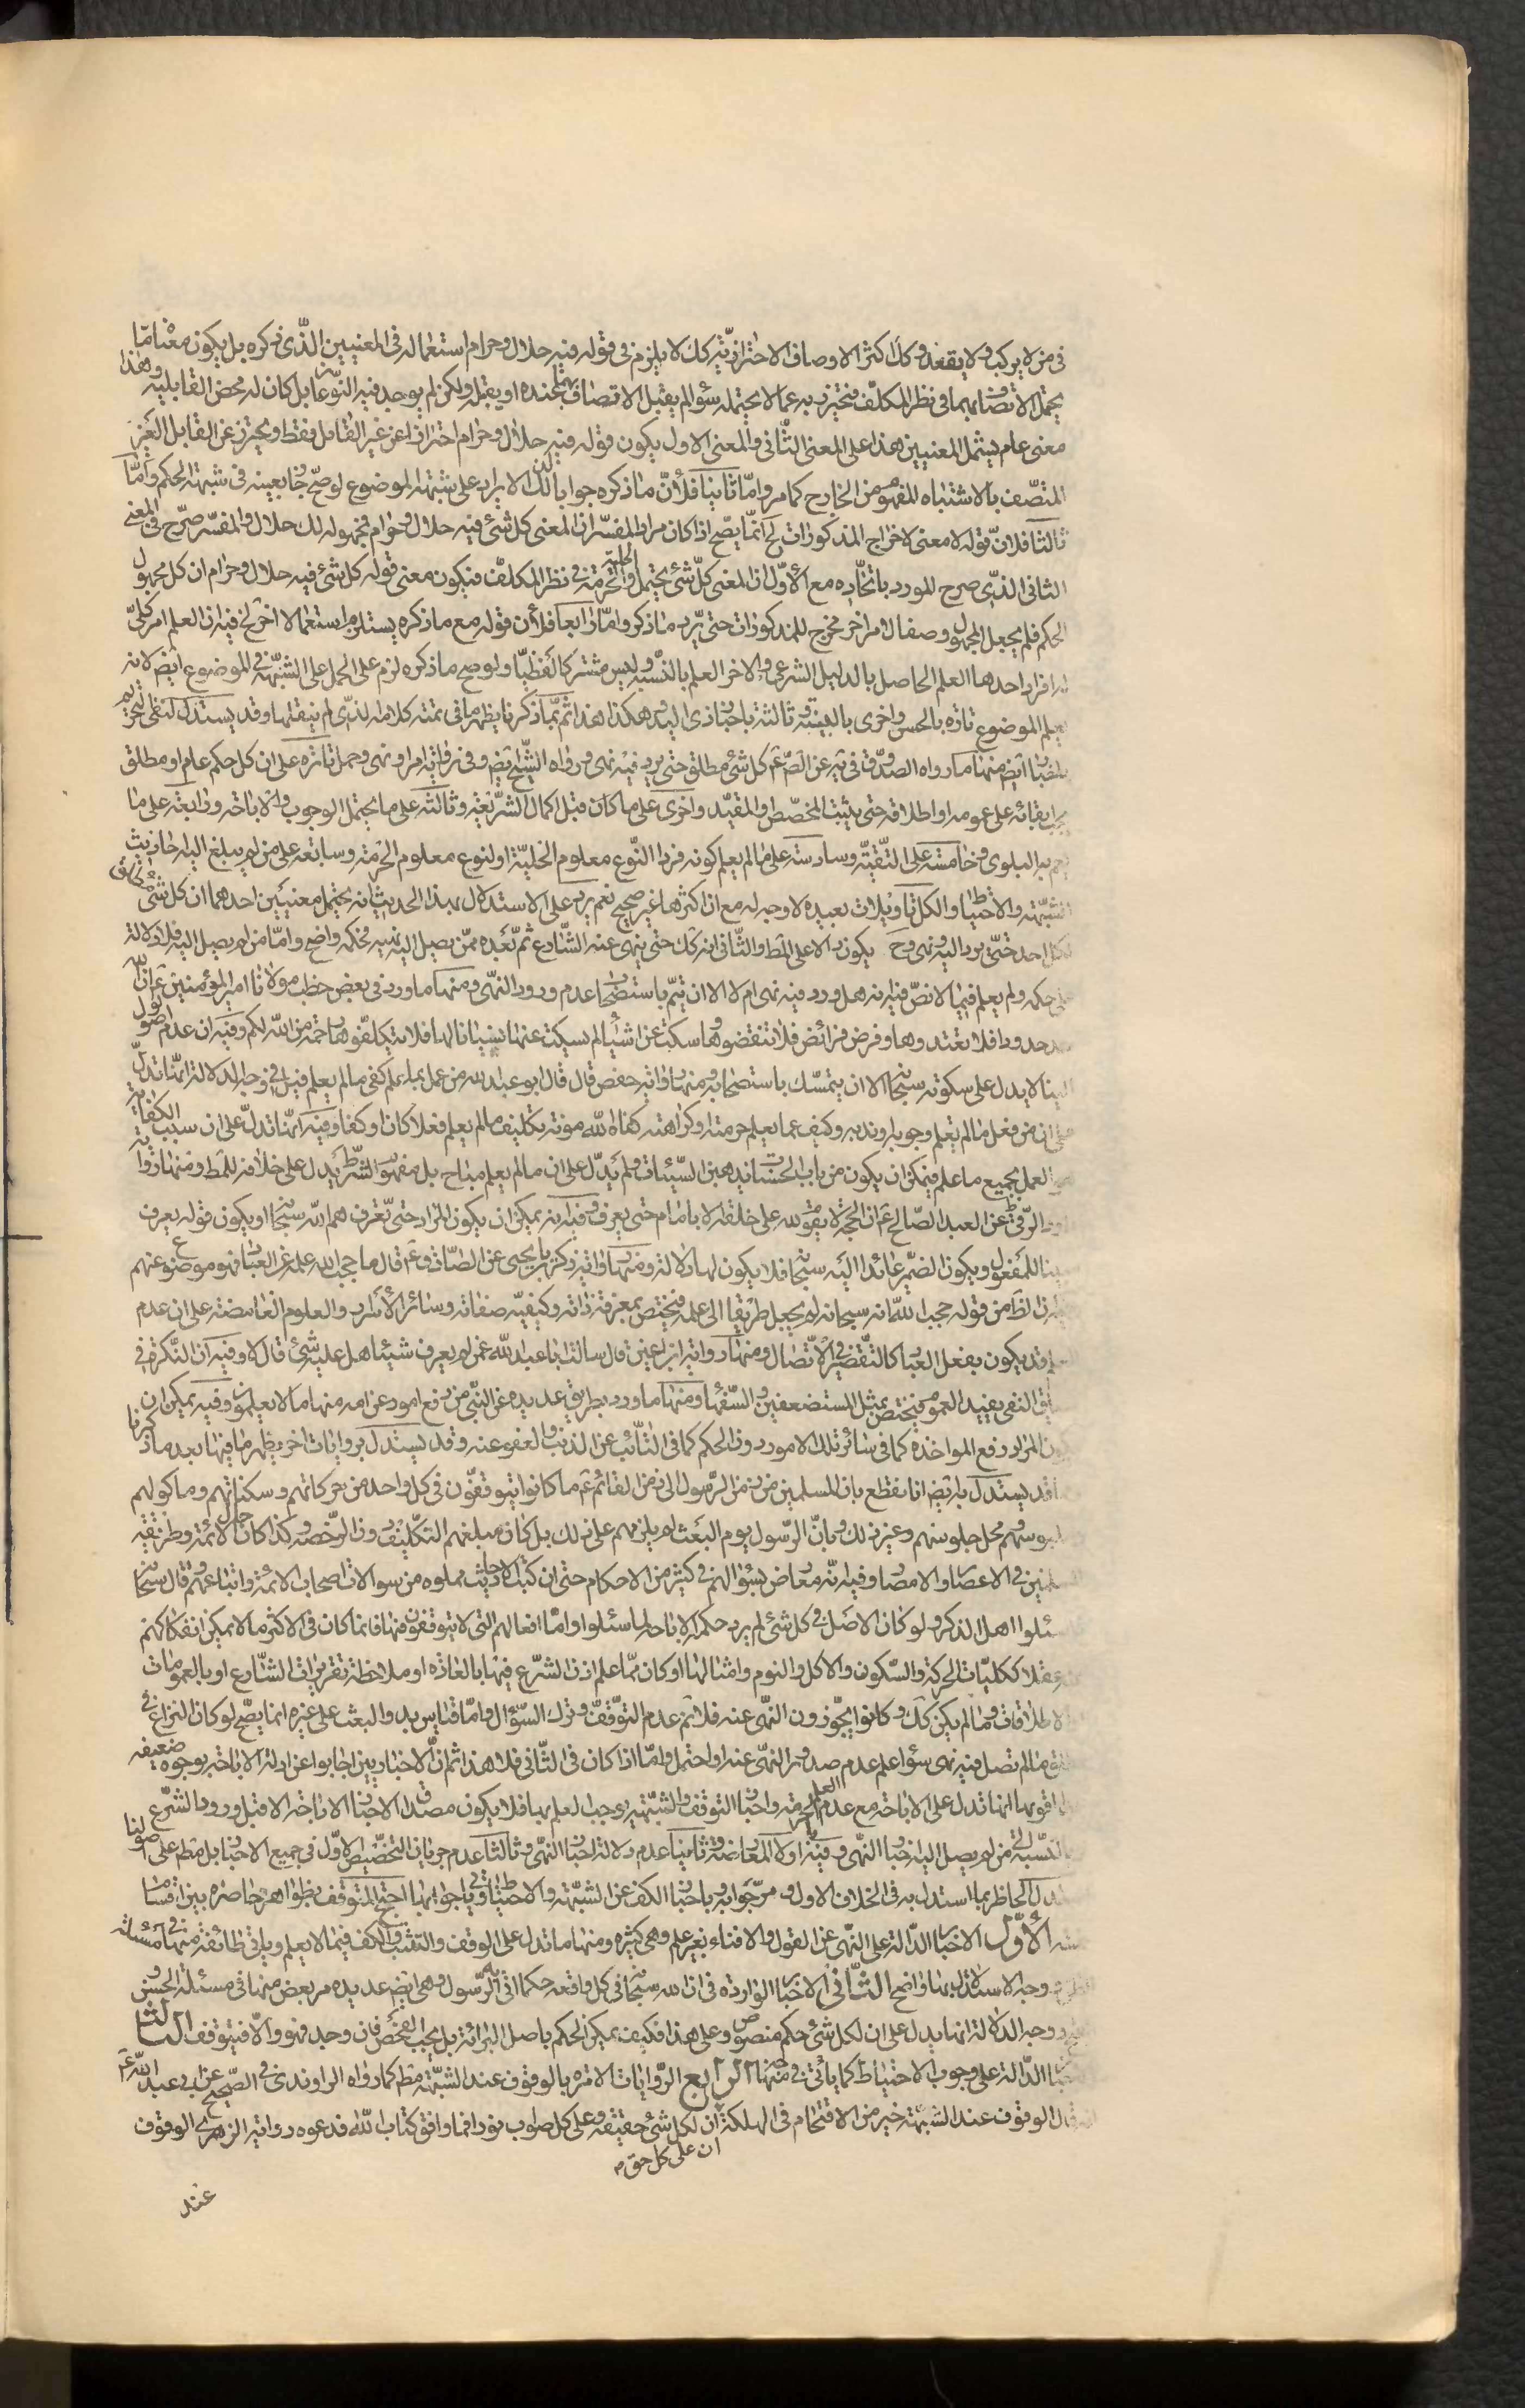 في من لا يركب ولا يقعد وكذا كثرا الاوصاف الاحترازية كك لا يلزم في قوله فيه حلال وحرام استعماله في المعنيين الذي ذكره بل يكون معناه ما
يحتمل الاتصاف بهما في نظر المكلف فيحترز به عما لا يحتمله سؤالم يقبل الاتصاف بجنده او يقبله ولكن لم يوجد فيه النوعا بل كان له محض القابلية وهذا
معنى عام يشمل المعنيين هذا على المعنى الثاني والمعنى الاول يكون قوله فيه حلال وحرام احترازا عن غير القابل فقط ويحترز عن القابل الغير
المتصف بالاشتباه المفهوم من الخارج كما مر واما ثانيا فلأن ما ذكره جوابا لك الايراد على شبهة الموضوع لوصح لجا بعينه في شبهة الحكم واما
ثالثا فلان قوله لا معنى لاخراج المذكورات لح انما يصح اذا كان مراد المفسر ان المعنى كل شئ فيه حلال وحرام فمجهوله لك حلال والمفسر صرح في المعنى
الثاني الذي صرح المورد باتحاده مع الاول ان المعنى كل شئ يحتمل الحلية والحرمة في نظر المكلف فيكون معنى قوله كل شئ فيه حلال وحرام ان كل مجهول
الحكم فلم يجعل المجهول وصفا لامر اخر مخرج للمذكورات حتى يرد ما ذكر واما رابعا فلأن قوله مع ما ذكره يستلزم استعمالا اخر لح فيه ان العلم امر كلي
له افراد احدها العلم الحاصل بالدليل الشرعي والاخر العلم بالنسبة وليس مشتركا لفظيا ولو صح ما ذكره لزم على الحمل على الشبهة في الموضوع ايض لانه
يعلم الموضوع تارة بالحس واخرى بالبينة وثالثة باخبار ذي اليد وهكذا هذا ثم بما ذكرنا يظهر ما في تتمة كلامه الذي لم ينقلها وقد يستدل لنفي التحريم
باخبار ايض منها ما رواه الصدوق في يه عن الص ع كل شئ مطلق حتى يرد فيه نهى ورواه الشيخ ايض وفي رواية امر او نهى وحمل تارة على ان كل حكم عام او مطلق
يجب ابقائه على عمومه او اطلاقه حتى يثبت المخصص او المقيد واخرى على ما كان قبل اكمال الشريعة وثالثة على ما يحتمل الوجوب والاباحة ورابعة على ما
يعم به البلوى وخامسة على التقية وسادسة على ما لم يعلم كونه فردا النوع معلوم الحلية او لنوع معلوم الحرمة وسابعة على من لم يبلغ اليه احاديث
الشبهة والاحتياط والكل تاويلات بعيدة لا وجه له مع ان اكثرها غير صحيح نعم يرد على الاستدلال بهذا الحديث انه يحتمل معنيين احدهما ان كل شئ مطلق
لكل احد حتى يرد اليه نهى وح يكون دالا على المط والثاني انه كك حتى ينهى عنه الشارع ثم بعده ممن يصل اليه نهيه فحكمه واضح واما من لم يصل اليه فلا دلالة
على حكمه ولم يعلم فيما لا نص فيه انه هل ورد فيه نهى ام لا الا ان يتم باستصحاب عدم ورود النهى ومنها ما ورد في بعض خطب مولانا امير المؤمنين ع ان الله
حد حدودا فلا تعتدوها وفرض فرائض فلا تنقضوها وسكت عن اشياء لم يسكت عنها نسيانا لها فلا تتكلفوها رحمة من الله لكم وفيه ان عدم وصول
الينا لا يدل على سكوته سبحانه الا ان يتمسك باستصحابه ومنها رواية حفص قال قال ابو عبد الله من عمل بما علم كفى ما لم يعلم قيل في وجه الدلالة انها تدل
على ان من فعل ما لم يعلم وجوبه او ندبه وكيف عما يعلم حرمته او كراهته كفاه الله مونة تكليف ما لم يعلم فعلا كان او كفا وفيه انها تدل على ان سبب الكفاية
هو العمل بجميع ما علم فيمكن ان يكون من باب الحسنات يذهبن السيئات ولم يدل على ان ما لم يعلم مباح بل مفهوم الشرط يدل على خلافه المط ومنها رواية
داود الرقي عن العبد الصالح ع ان الحجة لا يقوم لله على خلقه الا بامام حتى يعرف وفيه انه يمكن ان يكون المراد حتى تعرفهم الله سبحانه او يكون قوله يعرف
مبينا للمفعول ويكون الضمير عائدا اليه سبحانه فلا يكون لها دلالة ومنها رواية زكريا بن يحيى عن الصادق ع قال ما حجب الله علمه عن العباد فهو موضوع عنهم
وفيه ان الظ من قوله حجب الله انه سبحانه لم يجعل طريقا الى علمه فيختص بمعرفة ذاته وكيفية صفاته وسائر الاسرار والعلوم الغامضة على ان عدم
العلم قد يكون بفعل العباد كالتقصير في الاتصال ومنها رواية ابن اعين قال سالت ابا عبد الله عمن لم يعرف شيئا هل عليه شئ قال لا وفيه ان النكرة في
سياق النفي يفيد العموم فيختص بمثل المستضعفين والسفهاء ومنها ما ورد بطريق عديدة عن النبي من رفع امور عن امته منها ما لا يعلمون وفيه يمكن ان
يكون المراد رفع المواخذة كما في سائر تلك الامور دون الحكم كما في التائب عن الذنب والعفو عنه وقد يستدل بروايات اخر يظهر ما فيها بعد ما ذكرنا
وقد يستدل به ايض انا نقطع بان المسلمين من زمن الرسول الى زمن القائم ع ما كانوا يتوقفون في كل واحد من حركاتهم وسكناتهم وماكولهم
وملبوسهم ومحل جلوسهم وغير ذلك وبان الرسول يوم البعث لم يلزمهم على ذلك بل كان مبلغهم التكليف دون الرخصة وكذا كان حال الائمة وطريقة
المسلمين في الاعصار والامصار وفيه انه معارض بسؤالهم في كثير من الاحكام حتى ان كتب الاحاديث مملوه من سوالات اصحاب الائمة واتباعهم وقال سبحانه
فاسئلوا اهل الذكر ولو كان الاصل في كل شئ لم يرد حكمه الاباحة لما سئلوا واما افعالهم التي لا يتوقفون فيها فانما كان في الاكثر ما لا يمكن انفكاكهم
عنه عقلا ككليات الحركة والسكون والاكل والنوم وامثالها او كان مما علم اذن الشرع فيها بالعادة او ملاحظة تقريرات الشارع او بالعمومات
والاطلاقات وما لم يكن كك وكانوا يجوزون النهى عنه فلا نم عدم التوقف وترك السؤال واما قياس يد والبعث على غيره انما يصح لو كان النزاع في
تعلق ما لم تصل فيه نهى سؤاء علم عدم صدور النهى عنه او احتمل واما اذا كان في الثاني فلا هذا ثم ان الاخباريين اجابوا عن ادلة الاباحة بوجوه ضعيفة
اقويها انها تدل على الاباحة مع عدم العلم بالحرمة واخبار التوقف والشبهة يوجب العلم بها فلا يكون مصداق الاخبار الا الاباحة الا قبل ورود الشرع
او بالنسبة الى من لم يصل اليه اخبار النهى وفيه اولا المعارضة وثانيا عدم دلالة اخبار النهى وثالثا عدم جريان التخصيص الاول في جميع الاخبار بل مطم على اصولنا
استدل الحاظر بما استدل به في الخلاف الاول ومر جوابه وباخبار الكف عن الشبهة والاحتياط وياتي جوابها احتج المتوقف بظواهر حاصرة بين اقسام
ستة الاول الاخبار الدالة على النهى عن القول والافتاء بغير علم وهى كثيرة ومنها ما تدل على الوقف والتثبت والكف فيما لا يعلم وياتي طائفة منها في مسئلة
الظن ووجه الاستدلال بها واضح الثاني الاخبار الواردة في ان لله سبحانه في كل واقعة حكما اتى به الرسول وهى ايض عديدة مر بعض منها في مسئلة الحسن
والقبح ووجه الدلالة انها يدل على ان لكل شئ حكم منصوص وعلى هذا فكيف يمكن الحكم باصل البرائة بل يجب الفحص فان وجد فهو والا فيتوقف الثالث
الاخبار الدالة على وجوب الاحتياط كما ياتي في منها الرابع الروايات الامرة بالوقوف عند الشبهة مطم كما رواه الراوندي في الصحيح عن ابي عبد الله ع
انه قال الوقوف عند الشبهة خير من الاقتحام في الهلكة ان لكل شئ حقيقة وعلى كل صواب نورا فما وافق كتاب الله فدعوه ورواية الزهري الوقوف
ان على كل حق
عند